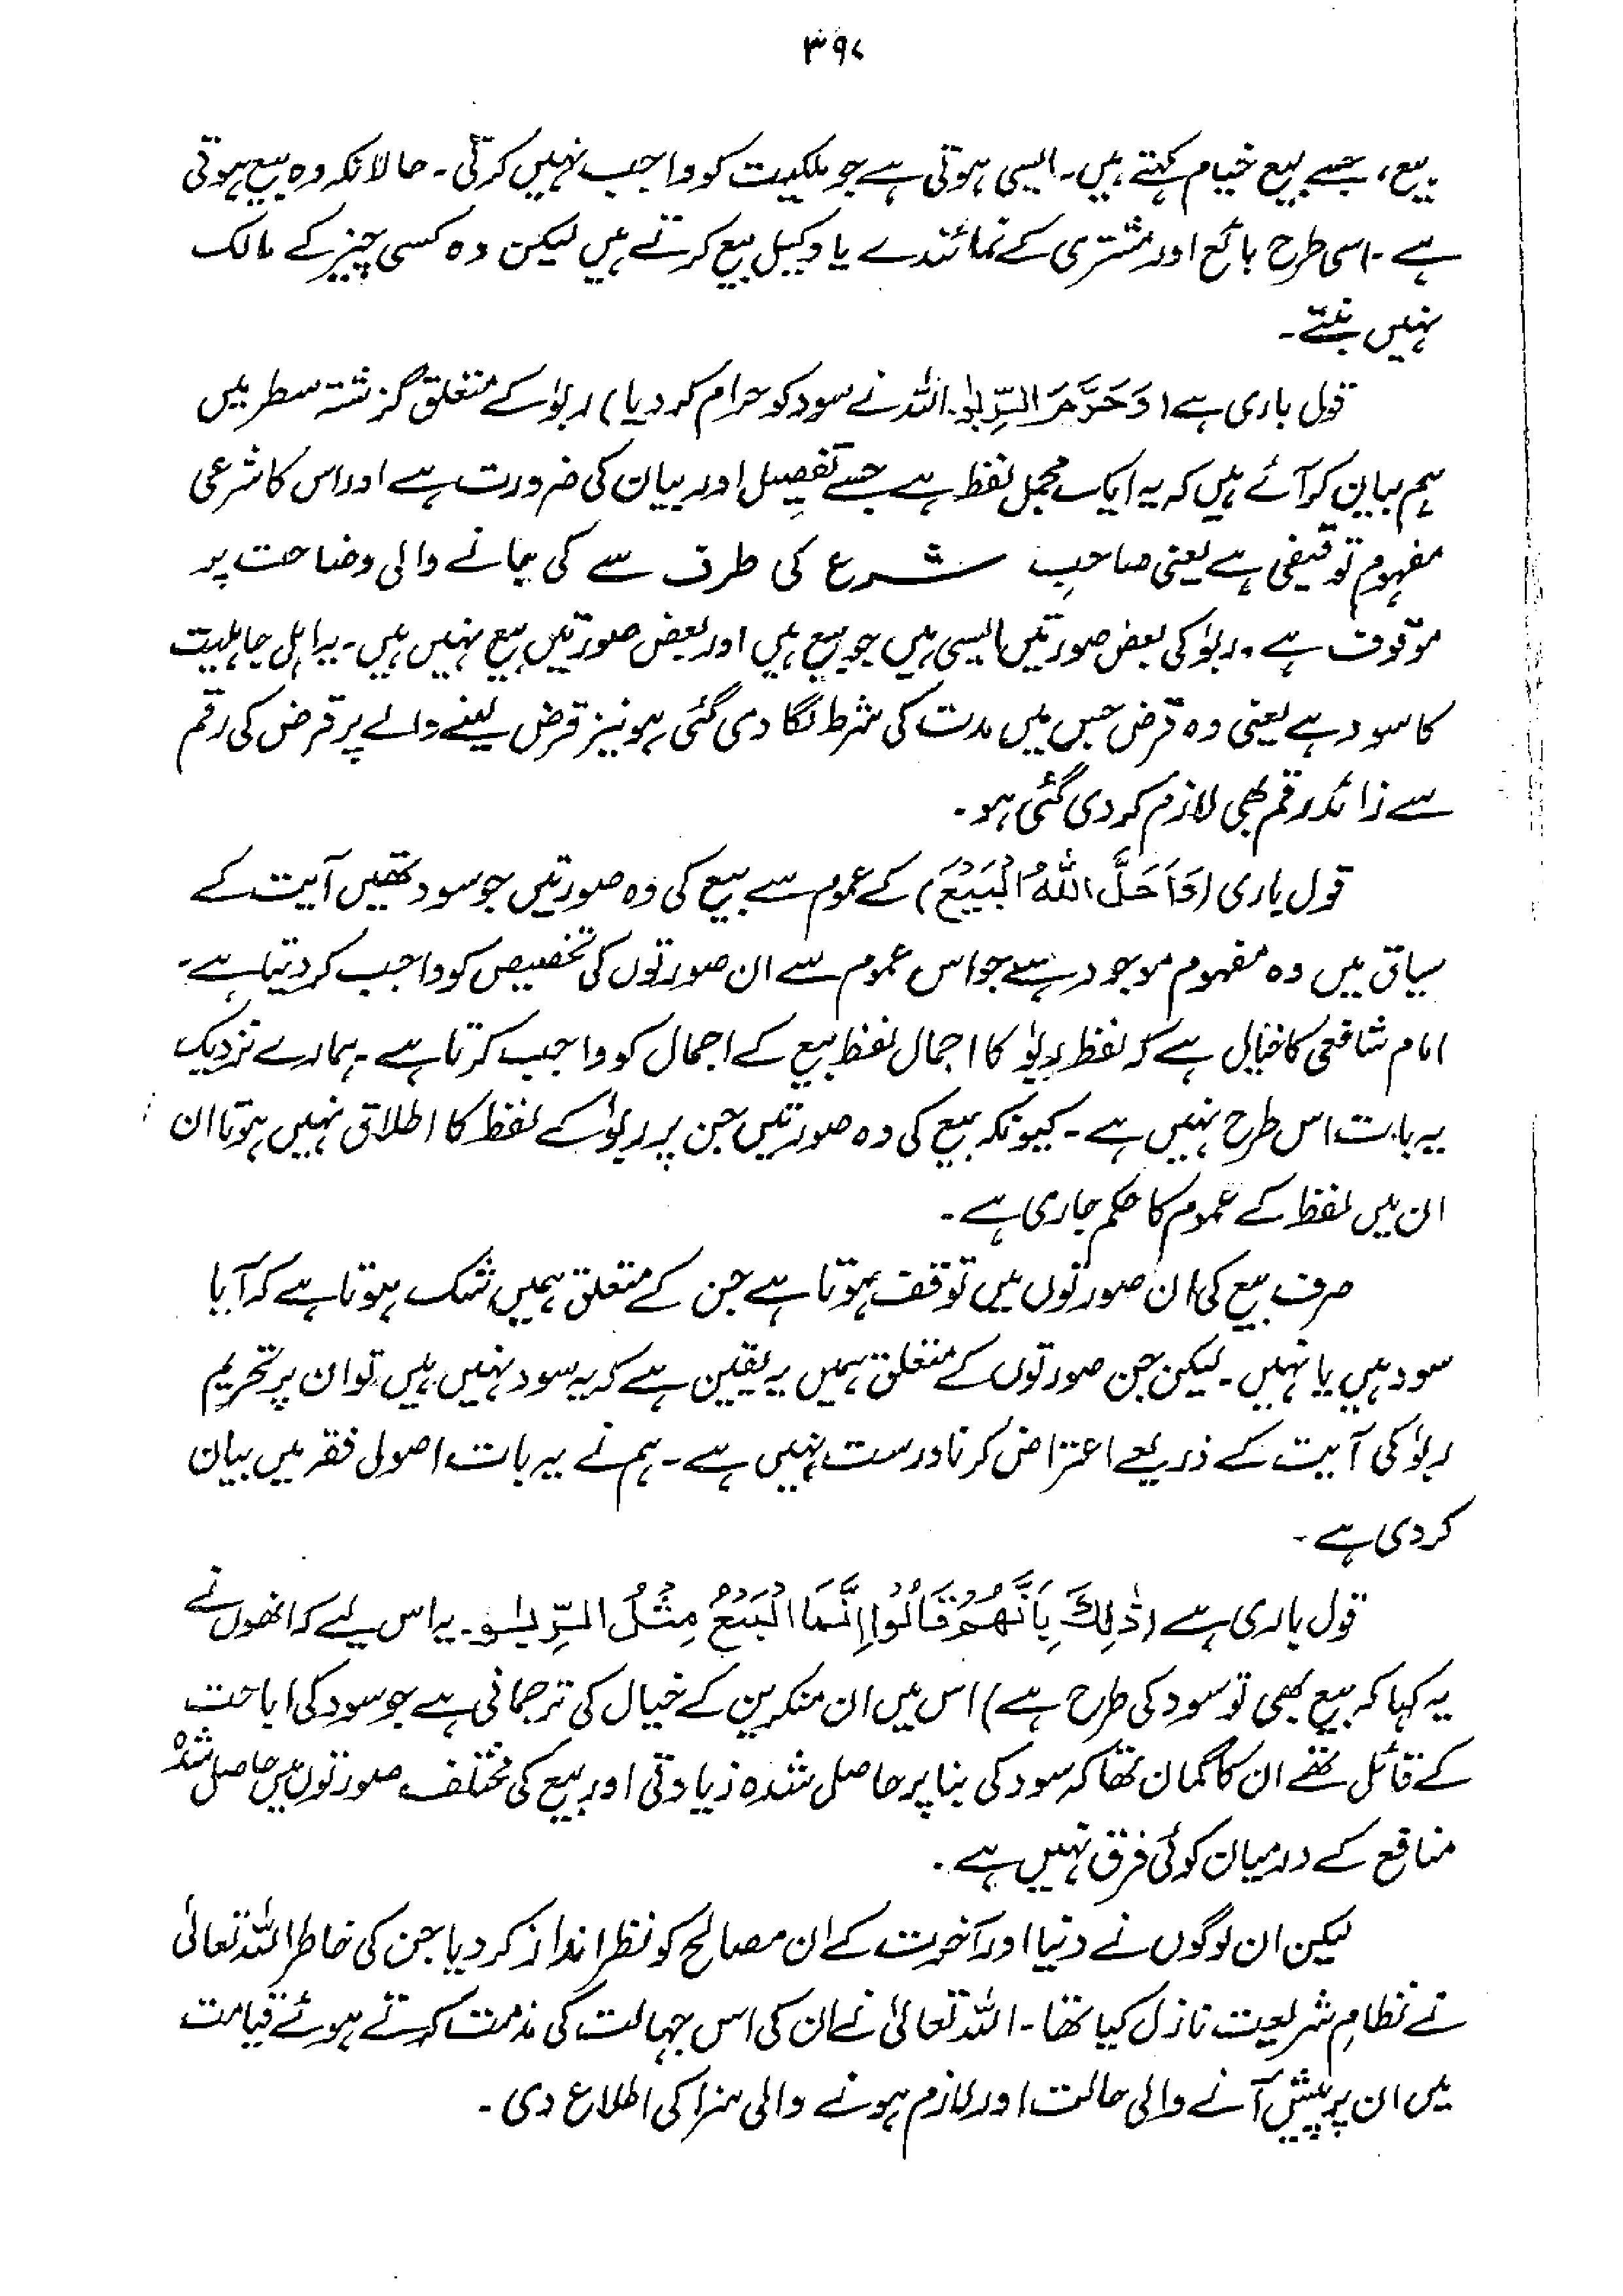 ۳۹۷
بیع، جسے بیع خیام کہتے ہیں۔ ایسی ہوتی ہے جو ملکیت کو واجب نہیں کرتی۔ حالانکہ وہ بیع ہوتی
ہے۔ اسی طرح بائع اور مشتری کے نمائندے یا وکیل بیع کرتے ہیں لیکن وہ کسی چیز کے مالک
نہیں بنتے۔
قول باری ہے (وَحَرَّمَ الرِّبٰوا۔ اللہ نے سود کو حرام کر دیا) ربوٰا کے متعلق گزشتہ سطر میں
ہم بیان کر آئے ہیں کہ یہ ایک مجمل لفظ ہے جسے تفصیل اور بیان کی ضرورت ہے اور اس کا شرعی
مفہوم توقیفی ہے یعنی صاحبِ شرع کی طرف سے کی جانے والی وضاحت پر
موقوف ہے۔ ربوٰا کی بعض صورتیں ایسی ہیں جو بیع ہیں اور بعض صورتیں بیع نہیں ہیں۔ یہ اہل جاہلیت
کا سود ہے یعنی وہ قرض جس میں مدت کی شرط لگا دی گئی ہو نیز قرض لینے والے پر قرض کی رقم
سے زائد رقم بھی لازم کر دی گئی ہو۔
قول باری (وَاَحَلَّ اللّٰهُ الْبَيْعَ) کے عموم سے بیع کی وہ صورتیں جو سود تھیں آیت کے
سیاق میں وہ مفہوم موجود ہے جو اس عموم سے ان صورتوں کی تخصیص کو واجب کر دیتا ہے۔
امام شافعی کا خیال ہے کہ لفظ ربوٰا کا اجمال لفظ بیع کے اجمال کو واجب کرتا ہے۔ ہمارے نزدیک
یہ بات اس طرح نہیں ہے۔ کیونکہ بیع کی وہ صورتیں جن پر ربوٰا کے لفظ کا اطلاق نہیں ہوتا ان
ان میں لفظ کے عموم کا حکم جاری ہے۔
صرف بیع کی ان صورتوں میں توقف ہوتا ہے جن کے متعلق ہمیں شک ہوتا ہے کہ آیا
سود ہیں یا نہیں۔ لیکن جن صورتوں کے متعلق ہمیں یہ یقین ہے کہ یہ سود نہیں ہیں تو ان پر تحریم
ربوٰا کی آیت کے ذریعے اعتراض کرنا درست نہیں ہے۔ ہم نے یہ بات اصول فقہ میں بیان
کر دی ہے۔
قول باری ہے (ذٰلِكَ بِاَنَّهُمْ قَالُوْا اِنَّمَا الْبَيْعُ مِثْلُ الرِّبٰوا۔ یہ اس لیے کہ انھوں نے
یہ کہا کہ بیع بھی تو سود کی طرح ہے) اس میں ان منکرین کے خیال کی ترجمانی ہے جو سود کی اباحت
کے قائل تھے ان کا گمان تھا کہ سود کی بنا پر حاصل شدہ زیادتی اور بیع کی مختلف صورتوں میں حاصل شدہ
منافع کے درمیان کوئی فرق نہیں ہے۔
لیکن ان لوگوں نے دنیا اور آخرت کے ان مصالح کو نظر انداز کر دیا جن کی خاطر اللہ تعالیٰ
نے نظامِ شریعت نازل کیا تھا۔ اللہ تعالیٰ نے ان کی اس جہالت کی مذمت کرتے ہوئے قیامت
میں ان پر پیش آنے والی حالت اور لازم ہونے والی سزا کی اطلاع دی۔